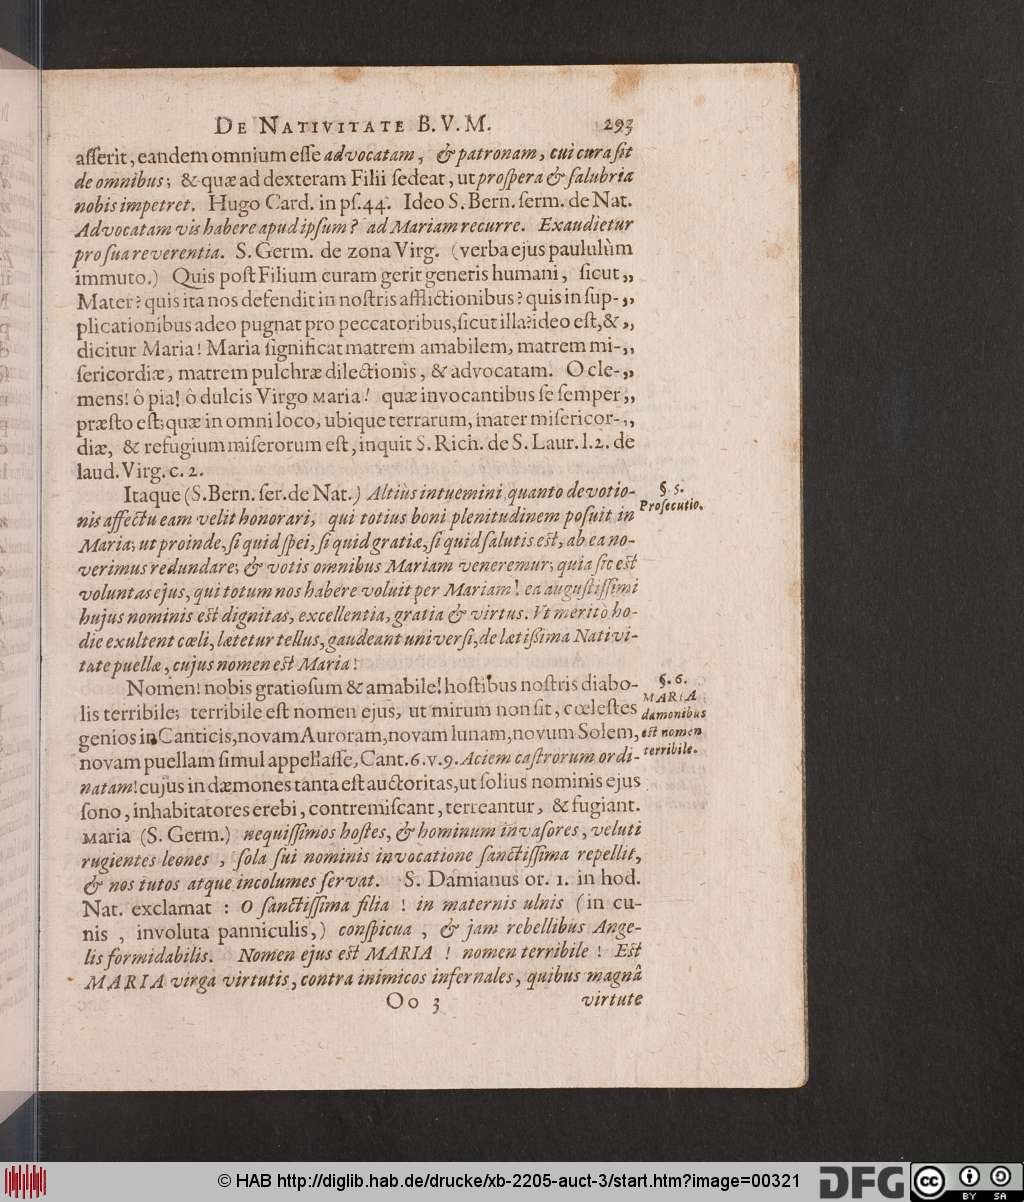 DE NATIVITATE B. V. M. 293
asſerit, eandem omnium eſſe advocatam, & patronam, cui cura ſit
de omnibus; & quæ ad dexteram Filii ſedeat, ut proſpera & ſalubria
nobis impetret. Hugo Card. in pſ. 44. Ideo S. Bern. ſerm. de Nat.
Advocatam vis habere apud ipſum? ad Mariam recurre. Exaudietur
pro ſua reverentia. S. Germ. de zona Virg. (verba ejus paululùm
immuto.) Quis poſt Filium curam gerit generis humani, ſicut „
Mater? quis ita nos defendit in noſtris afflictionibus? quis in ſup- „
plicationibus adeo pugnat pro peccatoribus, ſicut illa? ideo eſt, & „
dicitur Maria! Maria ſignificat matrem amabilem, matrem mi- „
ſericordiæ, matrem pulchræ dilectionis, & advocatam. O cle- „
mens! ô pia! ô dulcis Virgo Maria! quæ invocantibus ſe ſemper „
præſto eſt; quæ in omni loco, ubique terrarum, mater miſericor- „
diæ, & refugium miſerorum eſt, inquit S. Rich. de S. Laur. l. 2. de
laud. Virg. c. 2.
Itaque (S. Bern. ſer. de Nat.) Altiùs intuemini quanto devotio-
nis affectu eam velit honorari, qui totius boni plenitudinem poſuit in
Maria; ut proinde, ſi quid ſpei, ſi quid gratiæ, ſi quid ſalutis eſt, ab ea no-
verimus redundare; & votis omnibus Mariam veneremur; quia ſic eſt
voluntas ejus, qui totum nos habere voluit per Mariam! ea auguſtiſſimi
hujus nominis eſt dignitas, excellentia, gratia & virtus. Vt meritò ho-
die exultent cœli, lætetur tellus, gaudeant univerſi, de lætißima Nativi-
tate puellæ, cujus nomen eſt Maria!
§. 5.
Proſecutio.
Nomen! nobis gratioſum & amabile! hoſtibus noſtris diabo-
lis terribile; terribile eſt nomen ejus, ut mirum non ſit, cœleſtes
genios in Canticis, novam Auroram, novam lunam, novum Solem,
novam puellam ſimul appellaſſe, Cant. 6. v. 9. Aciem caſtrorum ordi-
natam! cujus in dæmones tanta eſt auctoritas, ut ſolius nominis ejus
ſono, inhabitatores erebi, contremiſcant, terreantur, & fugiant.
Maria (S. Germ.) nequiſſimos hoſtes, & hominum invaſores, veluti
rugientes leones, ſola ſui nominis invocatione ſanctiſſima repellit,
& nos tutos atque incolumes ſervat. S. Damianus or. 1. in hod.
Nat. exclamat : O ſanctiſſima filia ! in maternis ulnis (in cu-
nis, involuta panniculis,) conſpicua, & jam rebellibus Ange-
lis formidabilis. Nomen ejus eſt MARIA ! nomen terribile ! Eſt
MARIA virga virtutis, contra inimicos infernales, quibus magnâ
§. 6.
MARIA
dæmonibus
eſt nomen
terribile.
Oo 3 virtute
© HAB http://diglib.hab.de/drucke/xb-2205-auct-3/start.htm?image=00321
DFG
cc
BY SA